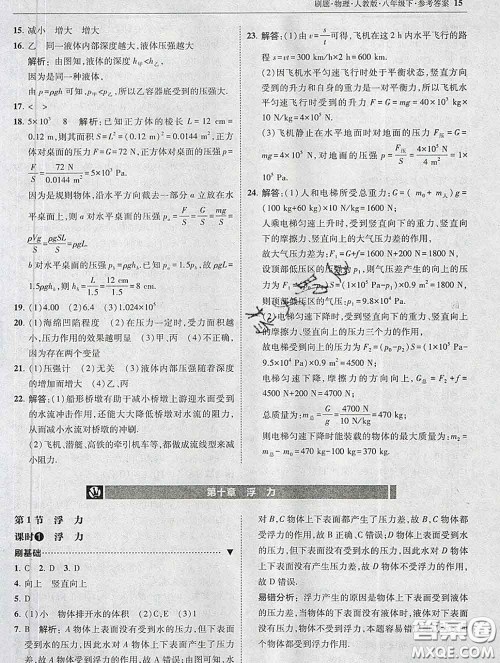 刷题·物理·人教版·八年级下·参考答案 15
15. 减小 增大 增大
16. 乙 同一液体内部深度越大,液体压强越大
解析:由图知,液体的深度 h甲<h乙,
由 p=ρgh 可知,所以乙容器底部受到的压强大。
17. < >
18. 5×10³ 8 解析:已知正方体的棱长 L = 12 cm =
0.12 m,则面积 S=L²=(0.12 m)²=0.0144 m²,正方
体对桌面的压力 F=G=72 N,正方体对桌面的压强 p=
F/S = 72 N/0.0144 m² = 5×10³ Pa。
因为是规则物体,沿水平方向截取一部分 a 立放在水
平桌面上,则 a 对水平桌面的压强 pa = F/S = G/S = mg/S =
ρVg/S = ρgSL/S = ρgL。
b 对水平桌面的压强 pb=ρgh,已知 pa=1.5pb,故 ρgL=
1.5ρgh,则 h = L/1.5 = 12 cm/1.5 = 8 cm。
19. (1)4.00 (2)6.4 (3)1.024×10⁵
20. (1)海绵凹陷程度 (2)压力一定时,受力面积越
小,压力作用的效果越明显 (3)不正确
因为存在两个变量
21. (1)压强计 (2)无关 (3)乙、丙 液体压强随深度
的增加而增大 (4)丙、丁
22. 解答:(1)船形桥墩有助于减小桥墩上游迎水面受到
的水流冲击作用,还能大大降低桥墩对水流的阻力,
从而减小水流对桥墩的冲刷。
(2)飞机、潜艇、高铁的牵引机车等,都做成流线型来减
小阻力。
23. 解答:(1)由 v = s/t 可得,飞机在这 2 h 内水平飞行的路
程 s=vt=300 km/h×2 h=600 km。
(2)因飞机水平匀速飞行时处于平衡状态,竖直方向
受到的升力和自身的重力是一对平衡力,所以,飞机水
平匀速飞行时受到的升力 F=G=mg=40×10³ kg×
10 N/kg=4×10⁵ N。
(3)飞机静止在水平地面时对地面的压力 F压=
G=4×10⁵ N,则对地面的压强 p = F压/S = 4×10⁵ N/0.5 m² =
8×10⁵ Pa。
24. 解答:(1)人和电梯所受总重力:G=(m0+m人)g=
(100 kg+60 kg)×10 N/kg=1600 N。
人乘电梯匀速上升时,受到竖直向下的重力、竖直向下
的摩擦力、竖直向上的大气压力差的作用,
故大气压力差为:F1=G+f=1600 N+200 N=1800 N,
设顶部低压区的压强为 p1,则 F1=(p0-p1)S,
则顶部低压区的气压:p1=9.8×10⁴ Pa。
(2)电梯匀速下降时,受到竖直向下的重力、竖直向上
的摩擦力、竖直向上的压力三个力的作用。
故电梯受到竖直向上的压力为 F2=(p0-p2)S=(1×10⁵ Pa-
9.5×10⁴ Pa)×0.9 m²=4500 N,
电梯匀速下降,摩擦力的方向向上,G总=F2+f=
4500 N+200 N=4700 N,
总质量为:m总 = G总/g = 4700 N/10 N/kg = 470 kg,
则电梯匀速下降时能装载的物体的最大质量:m物=
m总-m0=470 kg-100 kg=370 kg。
第十章 浮 力
第1节 浮 力
课时1 浮 力
刷基础
1. C 2. D 3. D
4. 向上 竖直向上
5. D
6. (1)小 物体排开水的体积 (2)C (3)1
7. B 解析:A 物体上表面没有受到水的压力,但下表面
对 B、C 物体上下表面都产生了压力差,故 B、C 物体
受到浮力的作用;但 D 物体上表面受到水的压力,下表
面没有受到水的压力,故 D 物体不受浮力的作用,故 A、
C、D 错误。
易错分析:浮力产生的原因是物体上下表面受到的压
力差,但下表面没有受到水的压力时,则没有浮力。